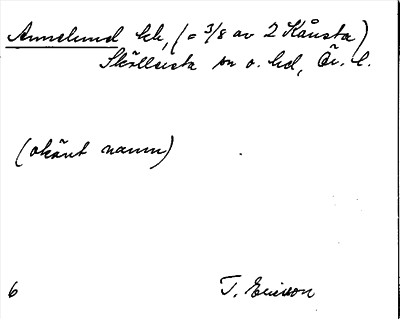 Annelund hh, (= 3/8 av 2 Kånsta)
Sköllersta sn o. hd, Ör. l.
(okänt namn)
6 T. Ericson